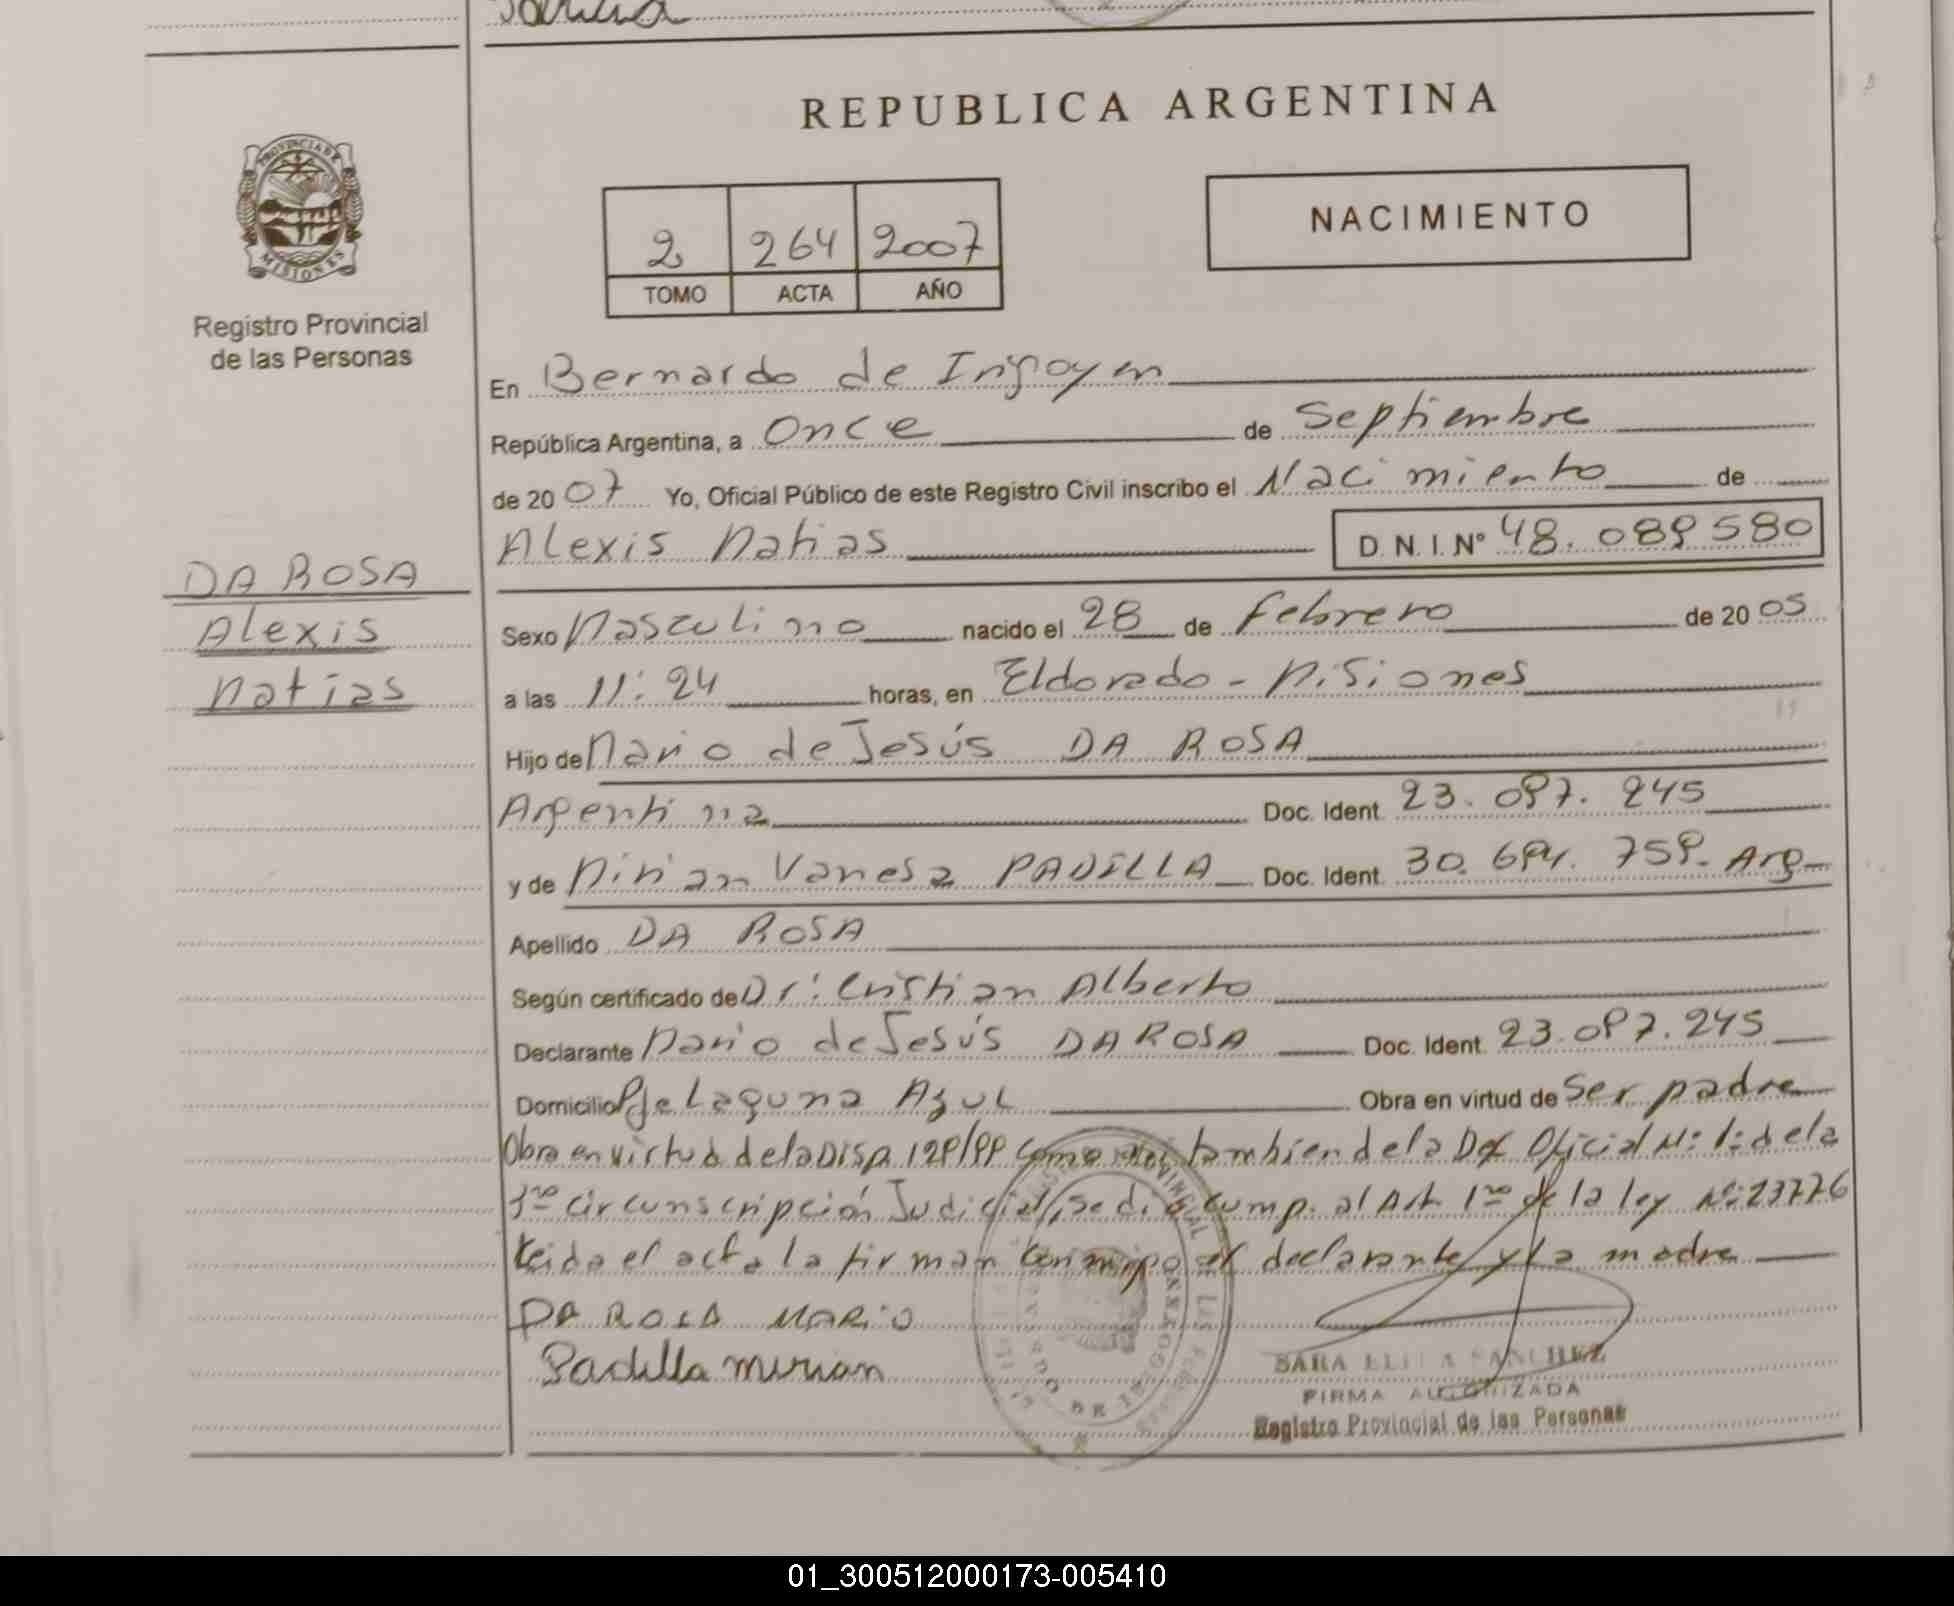 Padilla
REPUBLICA ARGENTINA
PROVINCIA DE
MISIONES
Registro Provincial
de las Personas
2 264 2007
TOMO ACTA AÑO
NACIMIENTO
En Bernardo de Irigoyen
República Argentina, a Once de Septiembre
de 2007 Yo, Oficial Público de este Registro Civil inscribo el Nacimiento de
Alexis Matias D.N.I. Nº 48.089580
DA ROSA
Alexis
Matias
Sexo Masculino nacido el 28 de Febrero de 2005
a las 11:24 horas, en Eldorado - Misiones
Hijo de Mario de Jesús DA ROSA
Argentina Doc. Ident. 23.097.245
y de Mirian Vanesa PADILLA Doc. Ident. 30.694.759. Arg
Apellido DA ROSA
Según certificado de Dr: Cristian Alberto
Declarante Mario de Jesús DA ROSA Doc. Ident. 23.097.245
Domicilio Pje Laguna Azul Obra en virtud de Ser padre
Obra en virtud de la Disp. 129/99 como tambien de la Oficial Nº 1: de la
3ra circunscripción Judicial, se dió cump. al Art. 1ro de la ley Nº: 23776
Leida el acta la firman conmigo el declarante y la madre
DA ROSA MARIO
Padilla Mirian
SARA SANCHEZ
FIRMA AUTORIZADA
Registro Provincial de las Personas
01_300512000173-005410